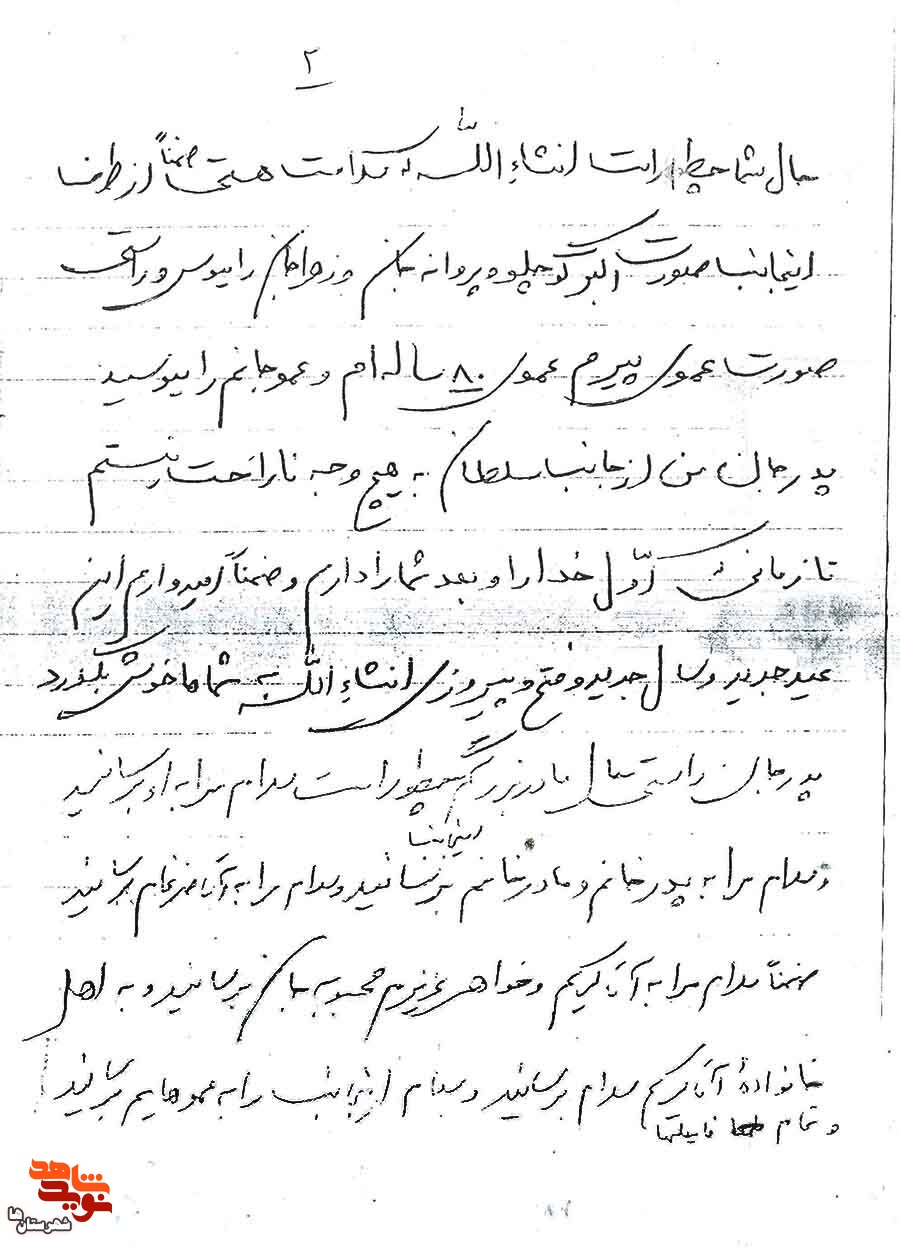 ۲
حال شما چطور است انشاءالله که سلامت هستید ضمناً از طرف
اینجانب صورت اکبر کوچولو و پروانه جان و زهرا جان را ببوس و راستی
صورت عموی پیرم عموی ۸۰ ساله ام و عمو جانم را ببوسید
پدر جان من از جانب سلطان به هیچ وجه ناراحت نیستم
تا زمانی که اوّل خدا را و بعد شما را دارم و ضمناً امیدوارم این
عید جدید و سال جدید و فتح و پیروزی انشاءالله به شماها خوش بگذرد
پدر جان راستی حال مادربزرگم چطور است سلام مرا به او برسانید
و سلام مرا به پدر خانم و مادر خانم اینجانب برسانید و سلام مرا به آقا ضرغام برسانید
ضمناً سلام مرا به آقا کریم و خواهر عزیزم محبوبه جان برسانید و به اهل
خانوادهٔ آقا کریم سلام برسانید و سلام اینجانب را به عموهایم برسانید
و تمام فامیلها
نوید شاهد
شهرستان ها